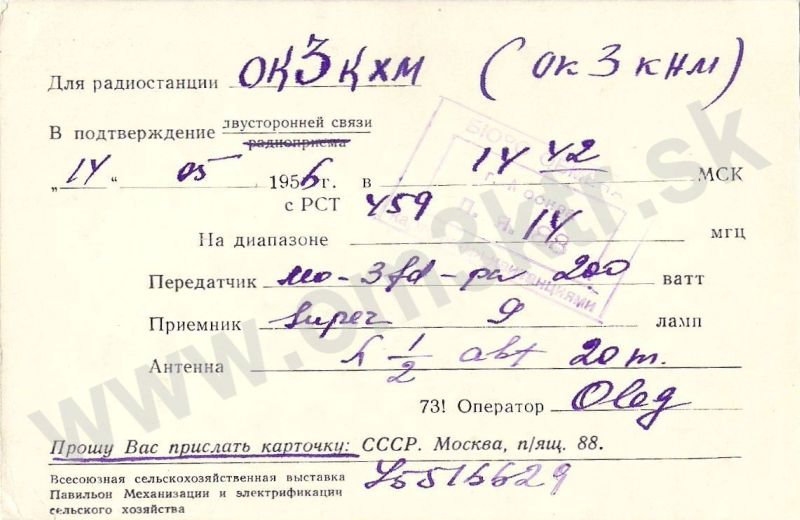 Для радиостанции ОК3КХМ (ОК3КНМ)
В подтверждение двусторонней связи
радиоприема
„14“ 05 1956 г. в 14 42 МСК
с РСТ 459
На диапазоне 14 мгц
Передатчик mo-3fd-pa 200 ватт
Приемник super 9 ламп
Антенна 1/2 20 m.
73! Оператор Oleg
Прошу Вас прислать карточку: СССР. Москва, п/ящ. 88.
Всесоюзная сельскохозяйственная выставка
Павильон Механизации и электрификации
сельского хозяйства
www.om3ktr.sk